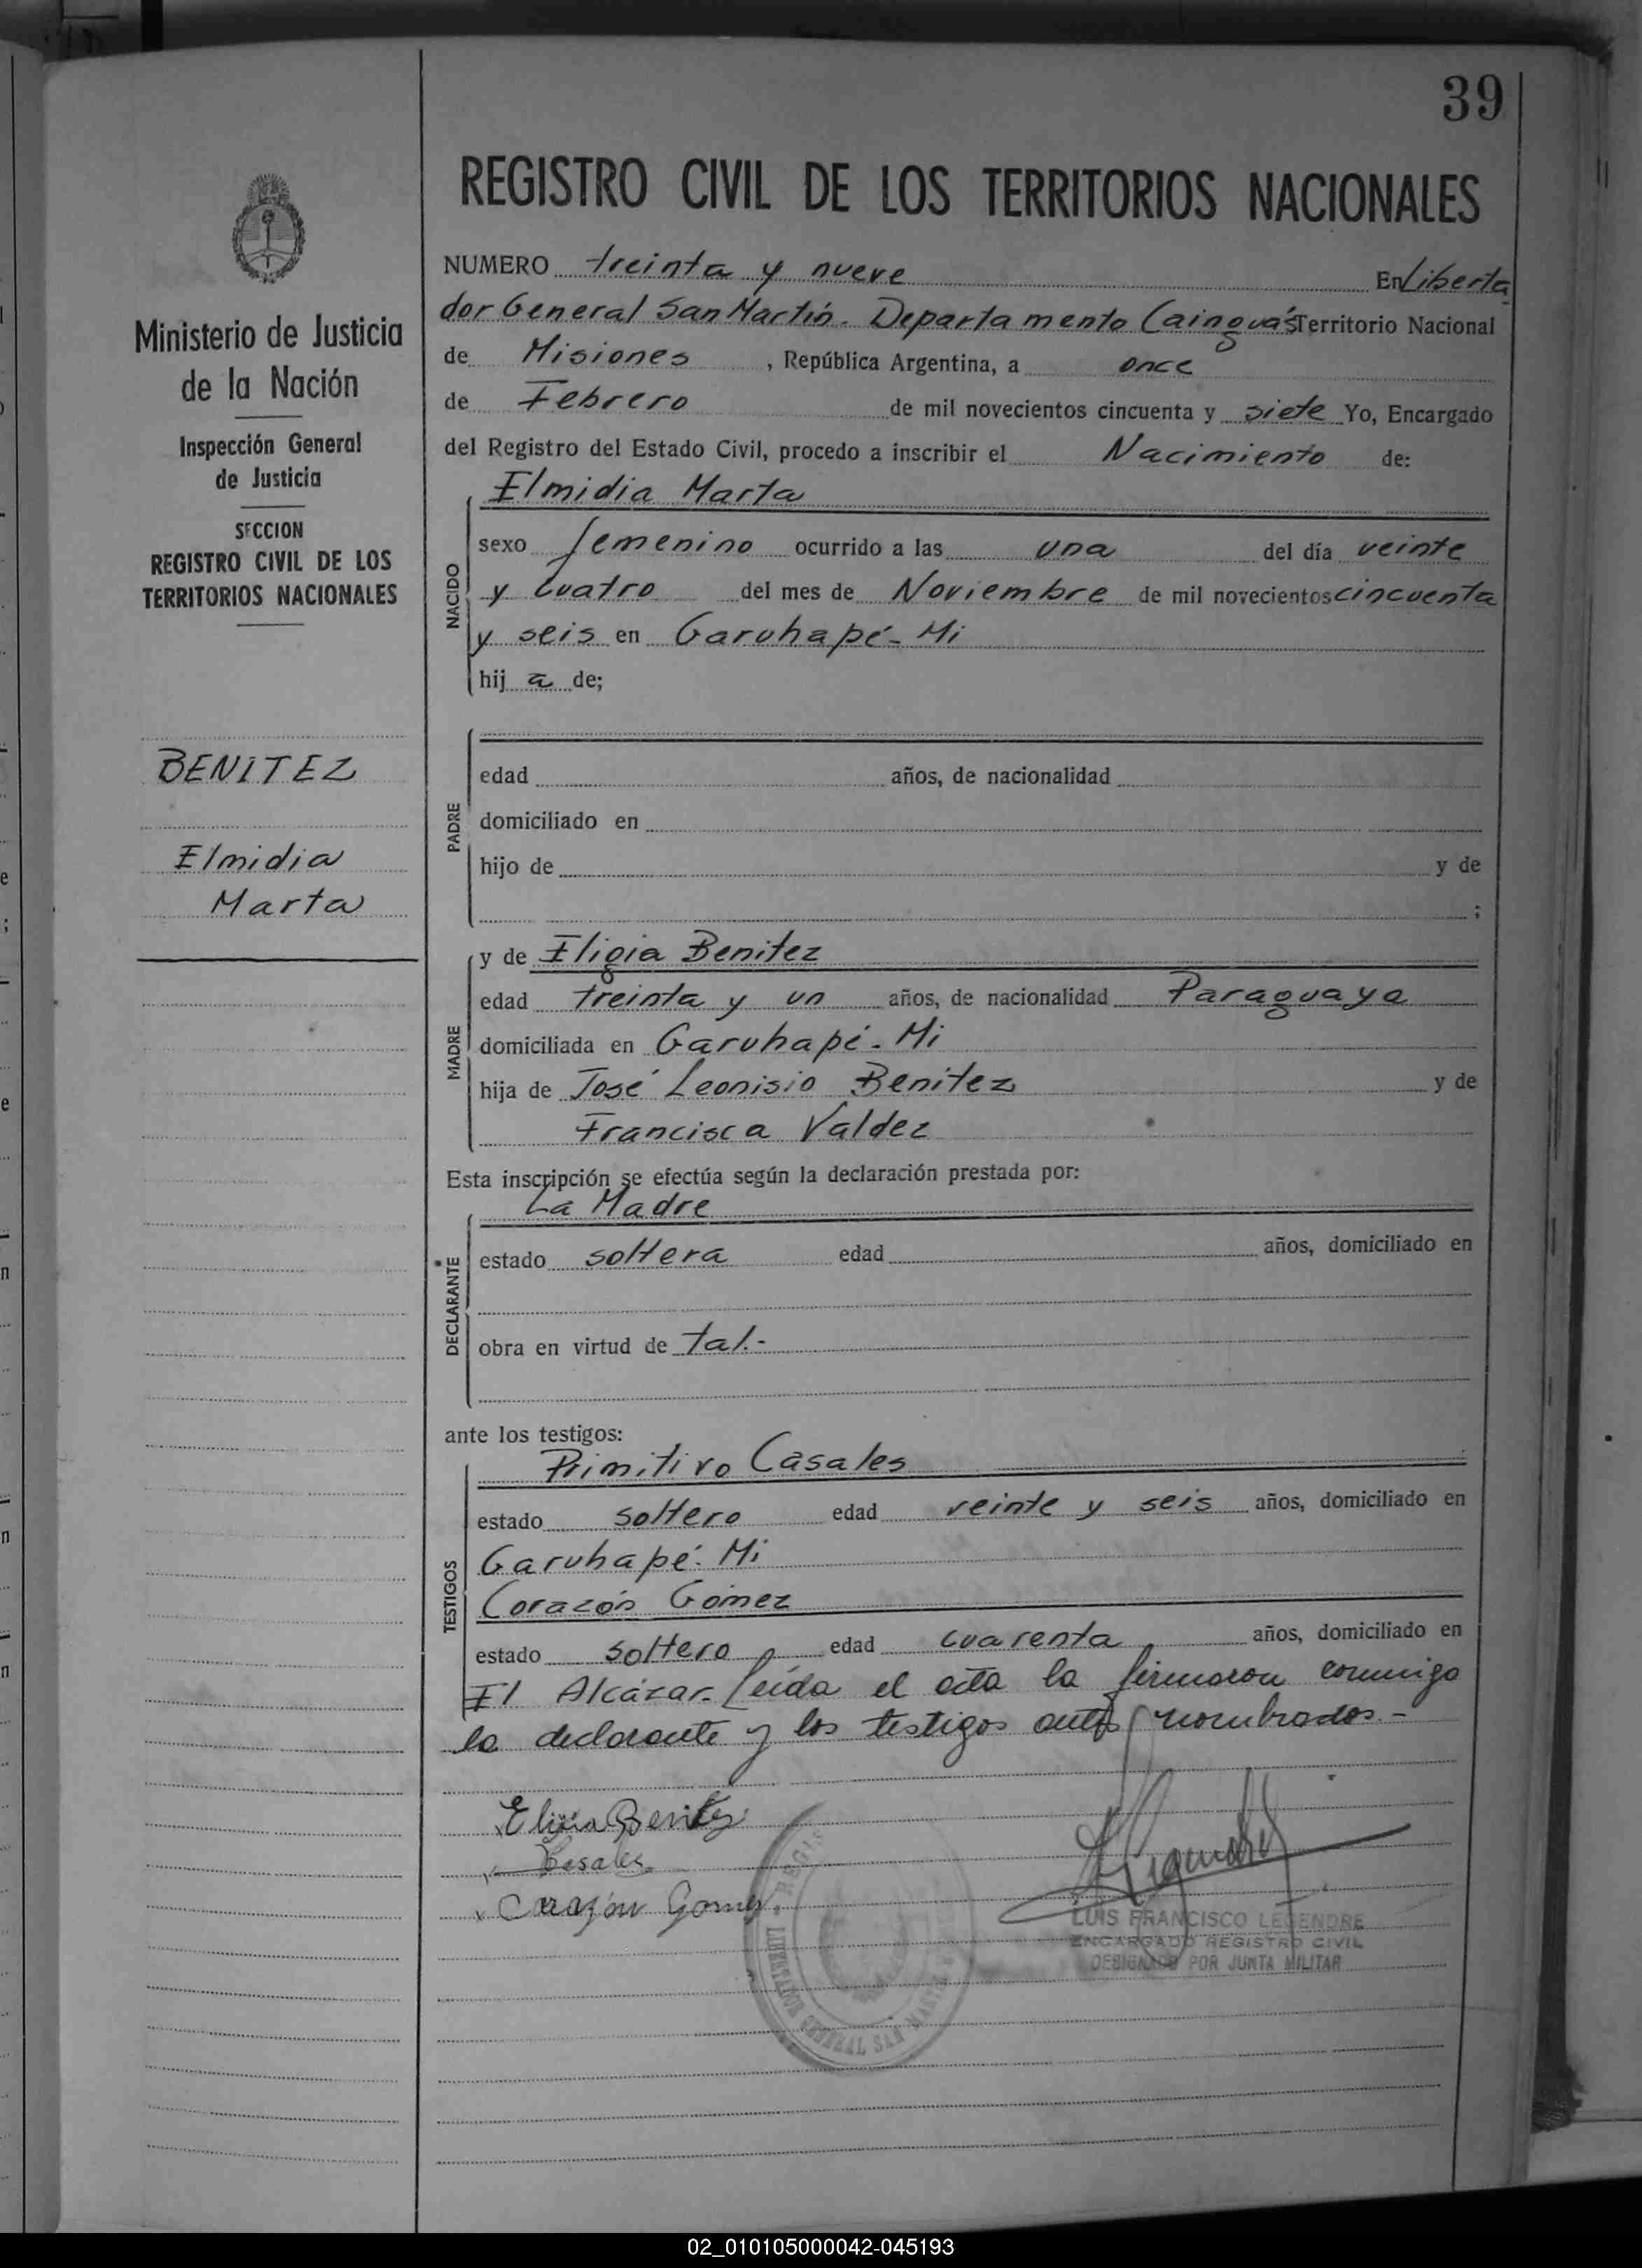 39
REGISTRO CIVIL DE LOS TERRITORIOS NACIONALES
Ministerio de Justicia
de la Nación
Inspección General
de Justicia
SECCION
REGISTRO CIVIL DE LOS
TERRITORIOS NACIONALES
BENITEZ
Elmidia
Marta
NUMERO treinta y nueve En Liberta
dor General San Martín. Departamento Cainguás Territorio Nacional
de Misiones, República Argentina, a once
de Febrero de mil novecientos cincuenta y siete Yo, Encargado
del Registro del Estado Civil, procedo a inscribir el Nacimiento de:
NACIDO
Elmidia Marta
sexo femenino ocurrido a las una del día veinte
y cuatro del mes de Noviembre de mil novecientos cincuenta
y seis en Garuhapé- Mi
hij a de;
PADRE
edad años, de nacionalidad
domiciliado en
hijo de y de
;
MADRE
y de Eligia Benitez
edad treinta y un años, de nacionalidad Paraguaya
domiciliada en Garuhapé- Mi
hija de José Leonisio Benitez y de
Francisca Valdez
Esta inscripción se efectúa según la declaración prestada por:
DECLARANTE
La Madre
estado soltera edad años, domiciliado en
obra en virtud de tal.-
ante los testigos:
TESTIGOS
Primitivo Casales
estado soltero edad veinte y seis años, domiciliado en
Garuhapé- Mi
Corazón Gómez
estado soltero edad cuarenta años, domiciliado en
El Alcázar. Leída el acta la firmaron conmigo
la declarante y los testigos antes nombrados.-
Eligia Benitez
Casales
Corazón Gomez
REGI
LIBERTADOR GENERAL SAN MARTIN
LUIS FRANCISCO LEGENDRE
ENCARGADO REGISTRO CIVIL
DESIGNADO POR JUNTA MILITAR
02_010105000042-045193